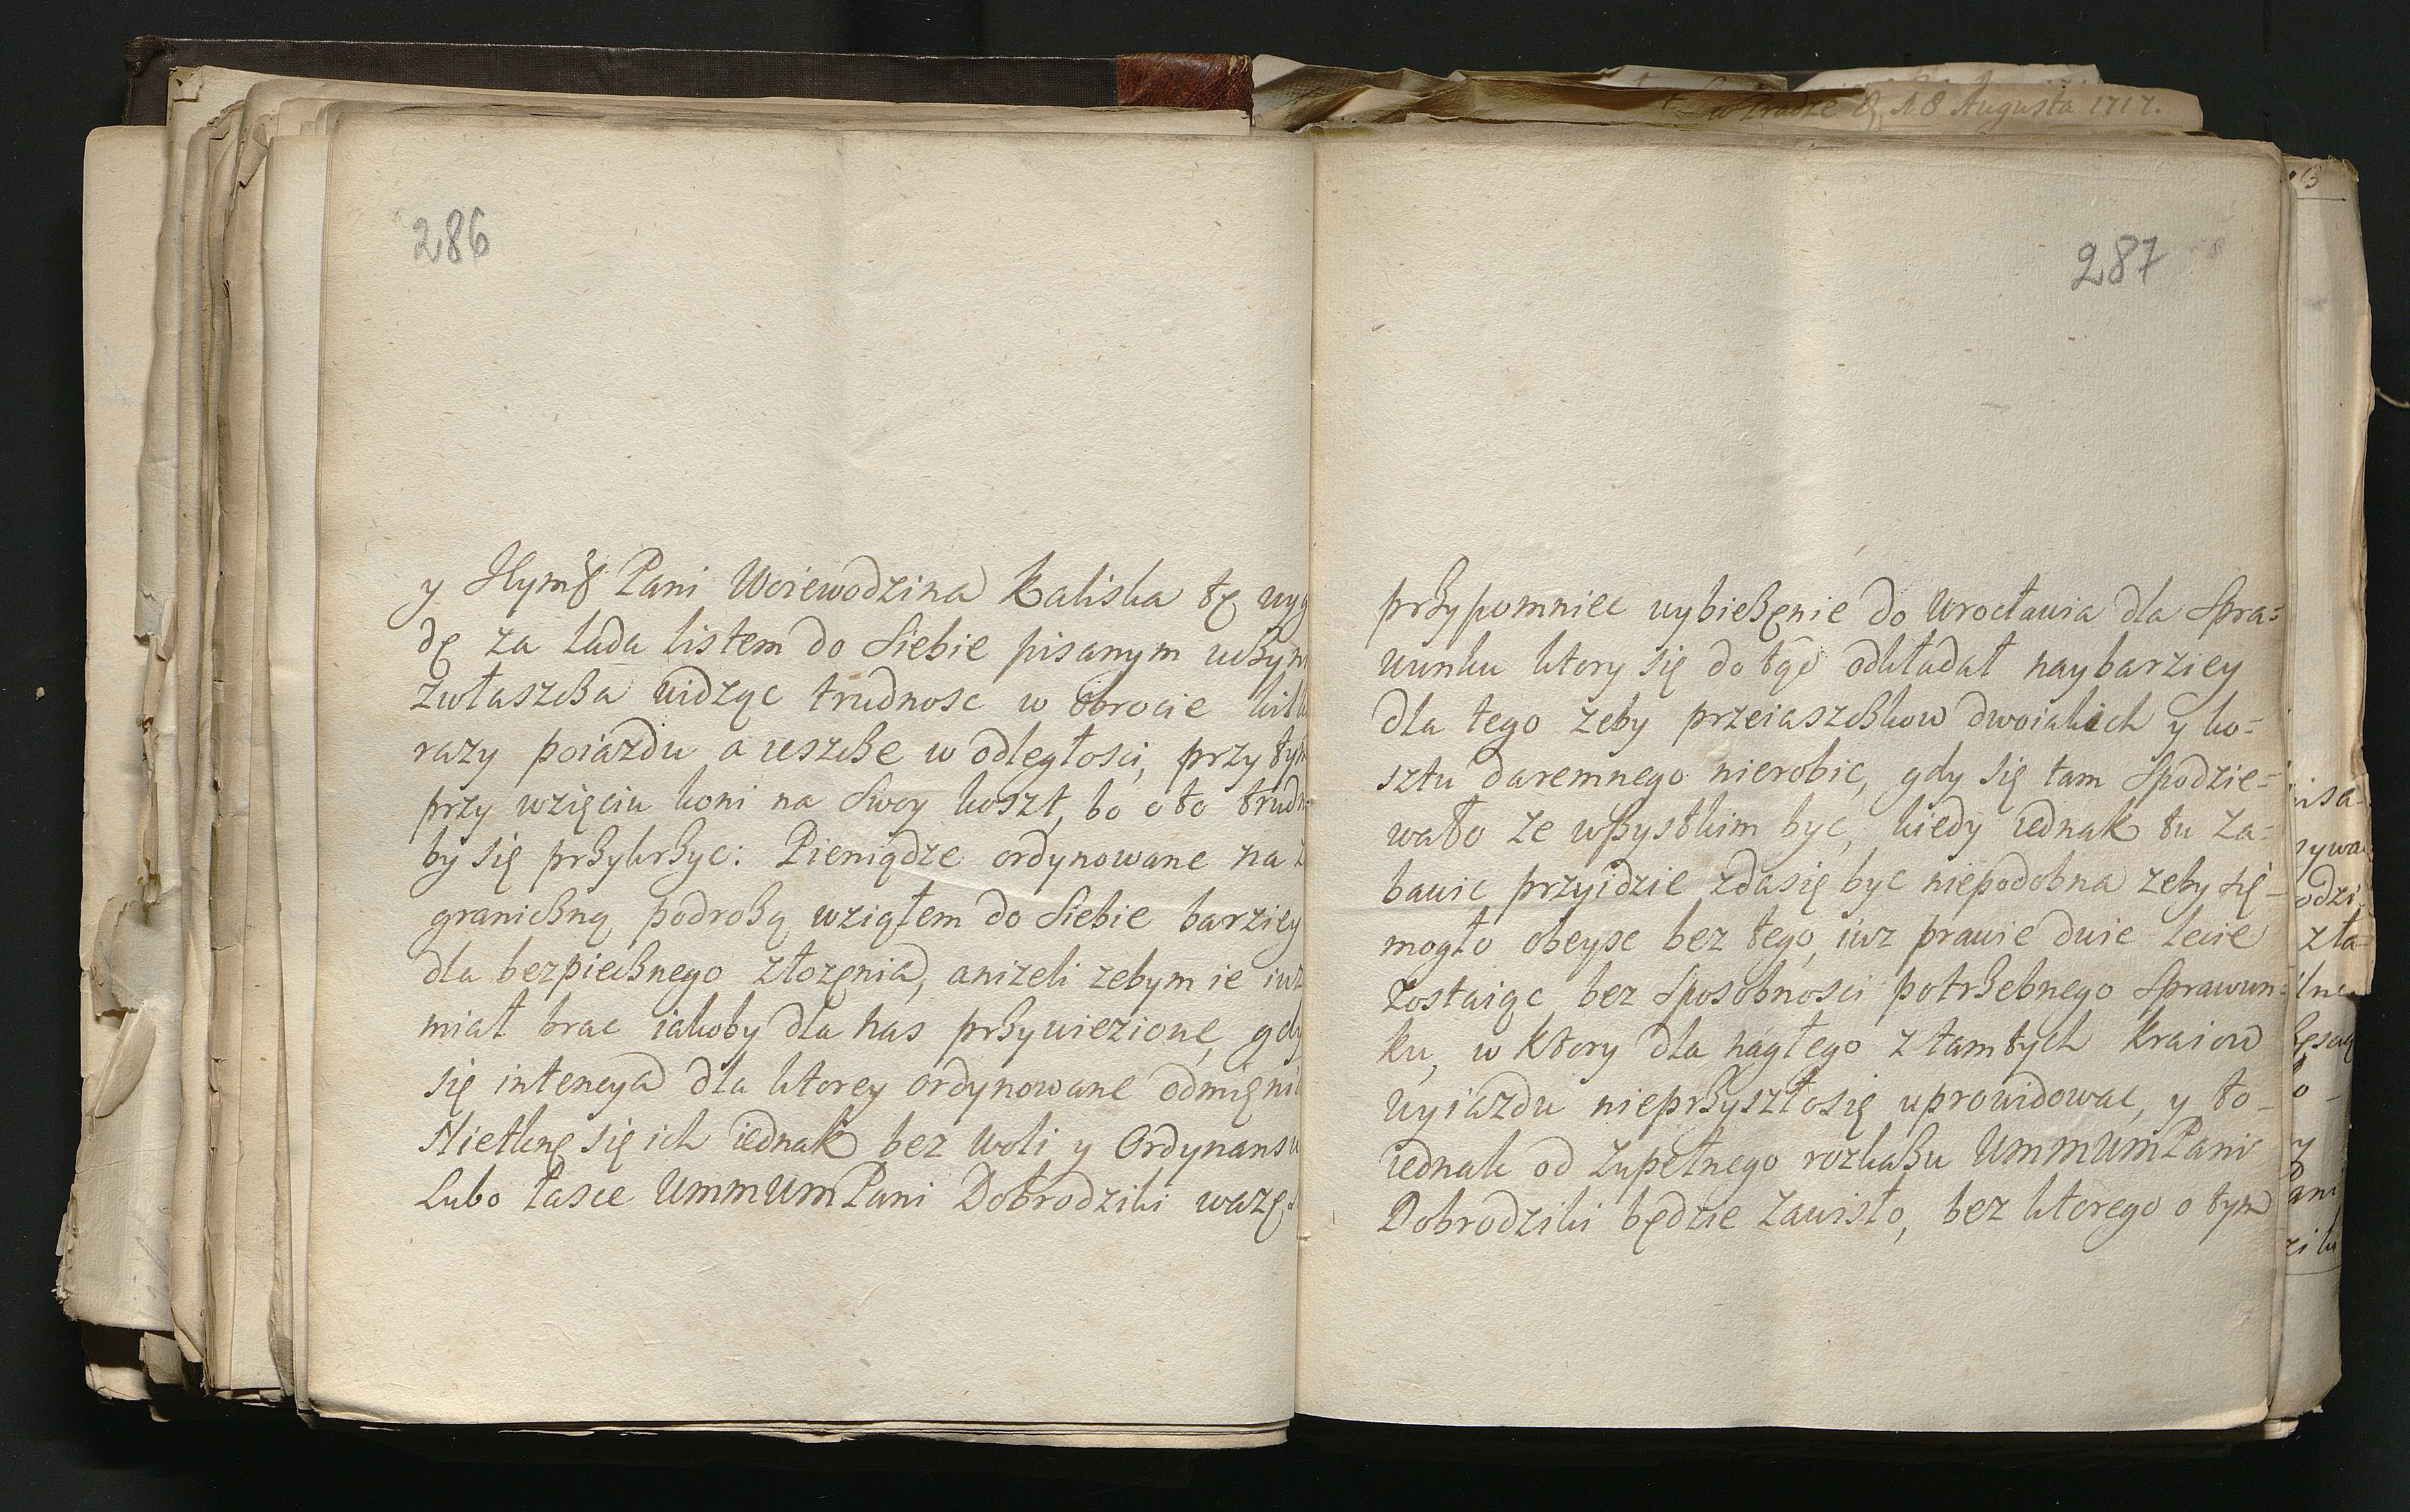 w Pradze d. 18 Augusta 1717.
286
y Jeymć Pani Woiewodzina Kaliska tę wyg
dę za lada listem do siebie pisanym uczyn
zwłaszcza widząc trudnosc w obrocie kilk
razy poiazdu a ieszcze w odległosci, przy tym
przy wzięciu koni na swoy koszt, bo o to trudn
by się przykrzyc: Pieniądze ordynowane na z
graniczną podrożą wziąłem do siebie barziey
dla bezpiecznego złozęnia, anizeli zebym ie iuz
miał brac iakoby dla nas przywiezione, gdy
się intencya dla ktorey ordynowane odmięni
Nietknę się ich iednak bez woli y Ordynansu
Lubo łasce UmmumPani Dobrodziki wazę
287
przypomniec wybiezęnie do Wrocławia dla spra=
wunku ktory się do tąd odkładał naybarziey
dla tego zeby przeiaszczkow dwoiakich y ko=
sztu daremnego nierobic, gdy się tam spodzie=
wało ze wszystkim byc, kiedy iednak tu za=
bawic przyidzie zdasię byc niepodobna zeby się
mogło obeysc bez tego, iuz prawie dwie lecie
zostaiąc bez sposobnosci potrzebnego sprawun=
ku, w ktory dla nagłego z tamtych kraiow
wyiazdu nieprzyszłosię uprowidowac, y to-
iednak od zupełnego rozkazu UmmumPani
Dobrodziki będzie zawisło, bez ktorego o tym